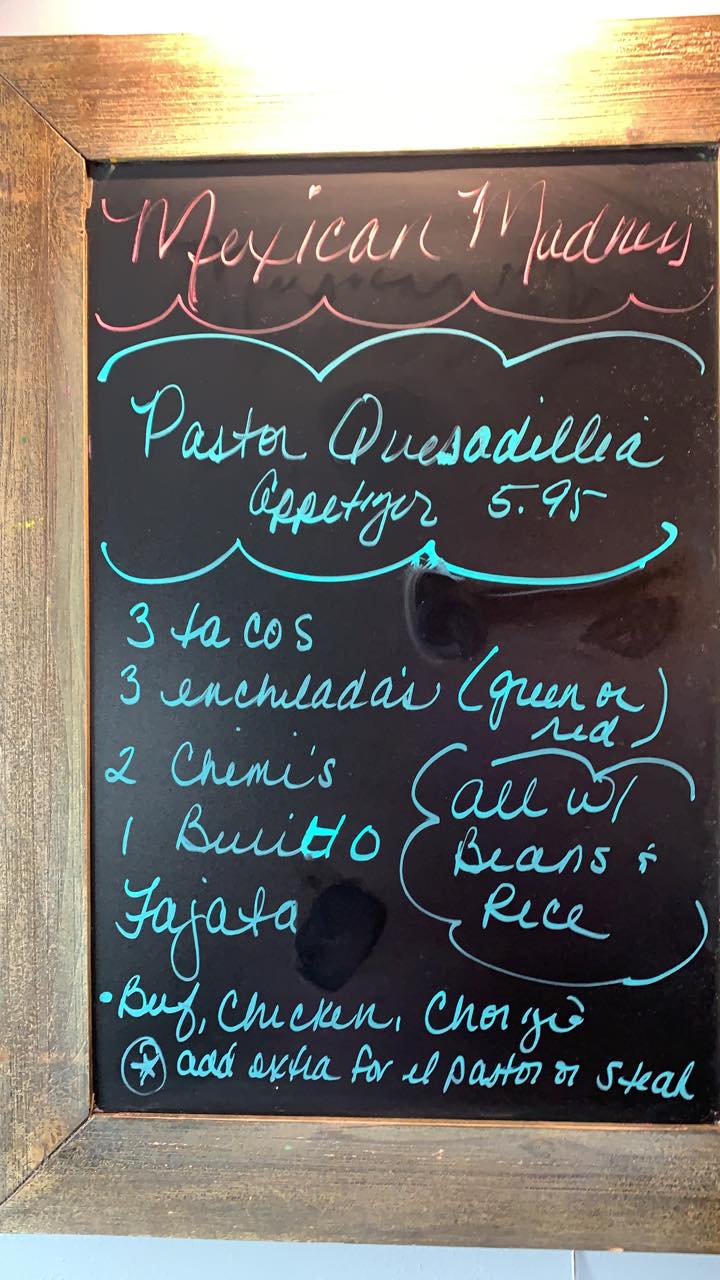 Mexican Madness
Pastor Quesadillia
appetizer 5.95
3 tacos
3 enchelada's (green or
red)
2 Chimi's
all w/
1 Buritto
Beans +
Rice
Fajata
• Beef, Chicken, Chorizo
* add extra for el pastor or steak